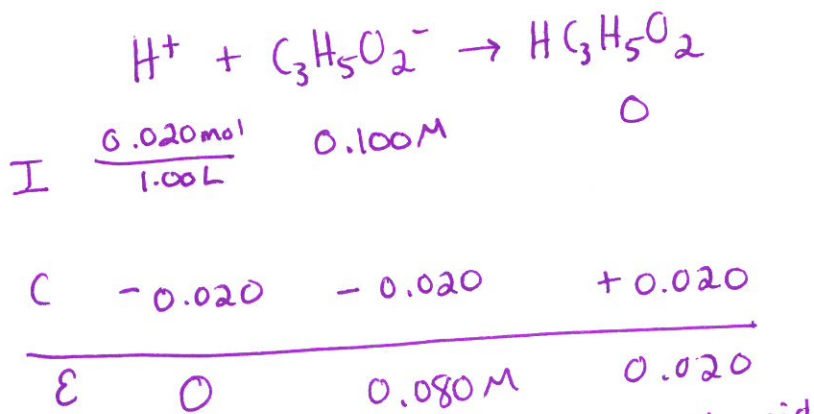 H⁺ + C₃H₅O₂⁻ → HC₃H₅O₂
I 0.020mol/1.00L 0.100M 0
C -0.020 -0.020 +0.020
E 0 0.080M 0.020